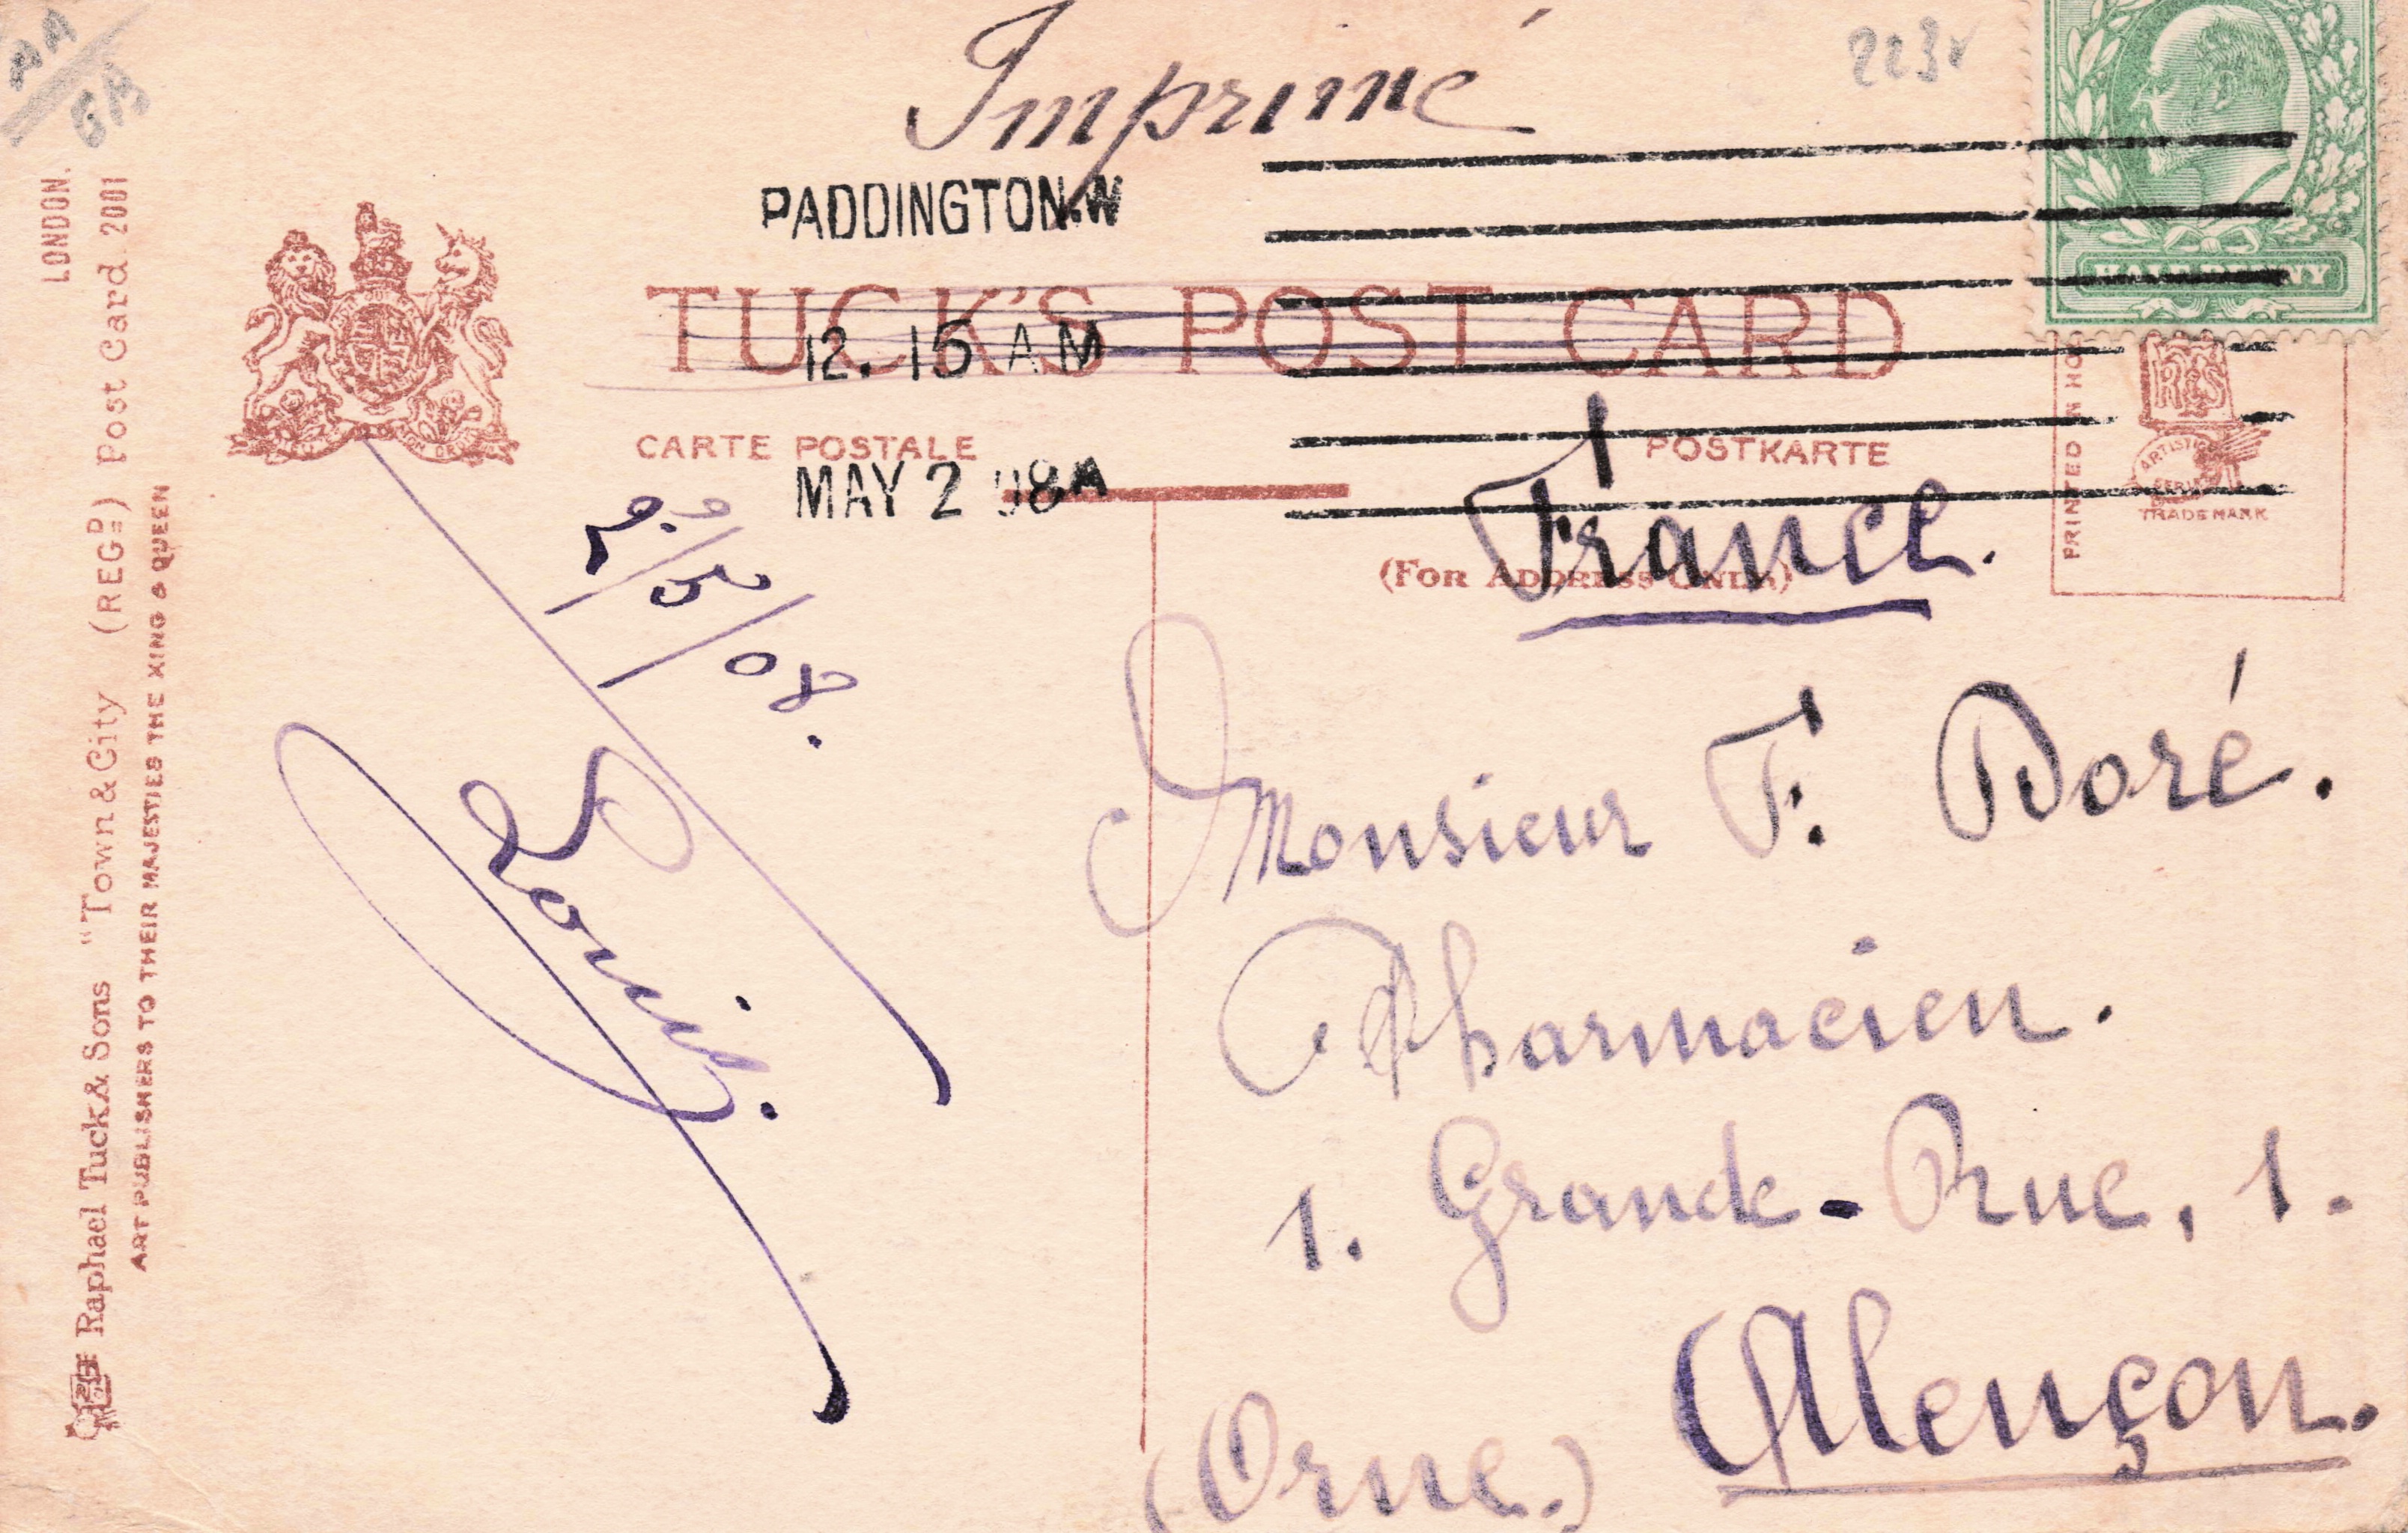 Imprimé
223
PADDINGTON.W
TUCK'S POST CARD
12.15 AM
CARTE POSTALE
POSTKARTE
MAY 2 08A
France.
(FOR ADDRESS ONLY)
HALF PENNY
PRINTED IN HO
RTS
ARTISTIC
SERIES
TRADE MARK
2/5/08.
Louis.
Monsieur F. Doré.
Pharmacien.
1. Grande-Rue, 1.
Alençon.
(Orne.)
Raphael Tuck & Sons "Town & City (REGD) Post Card 2001
LONDON.
ART PUBLISHERS TO THEIR MAJESTIES THE KING & QUEEN